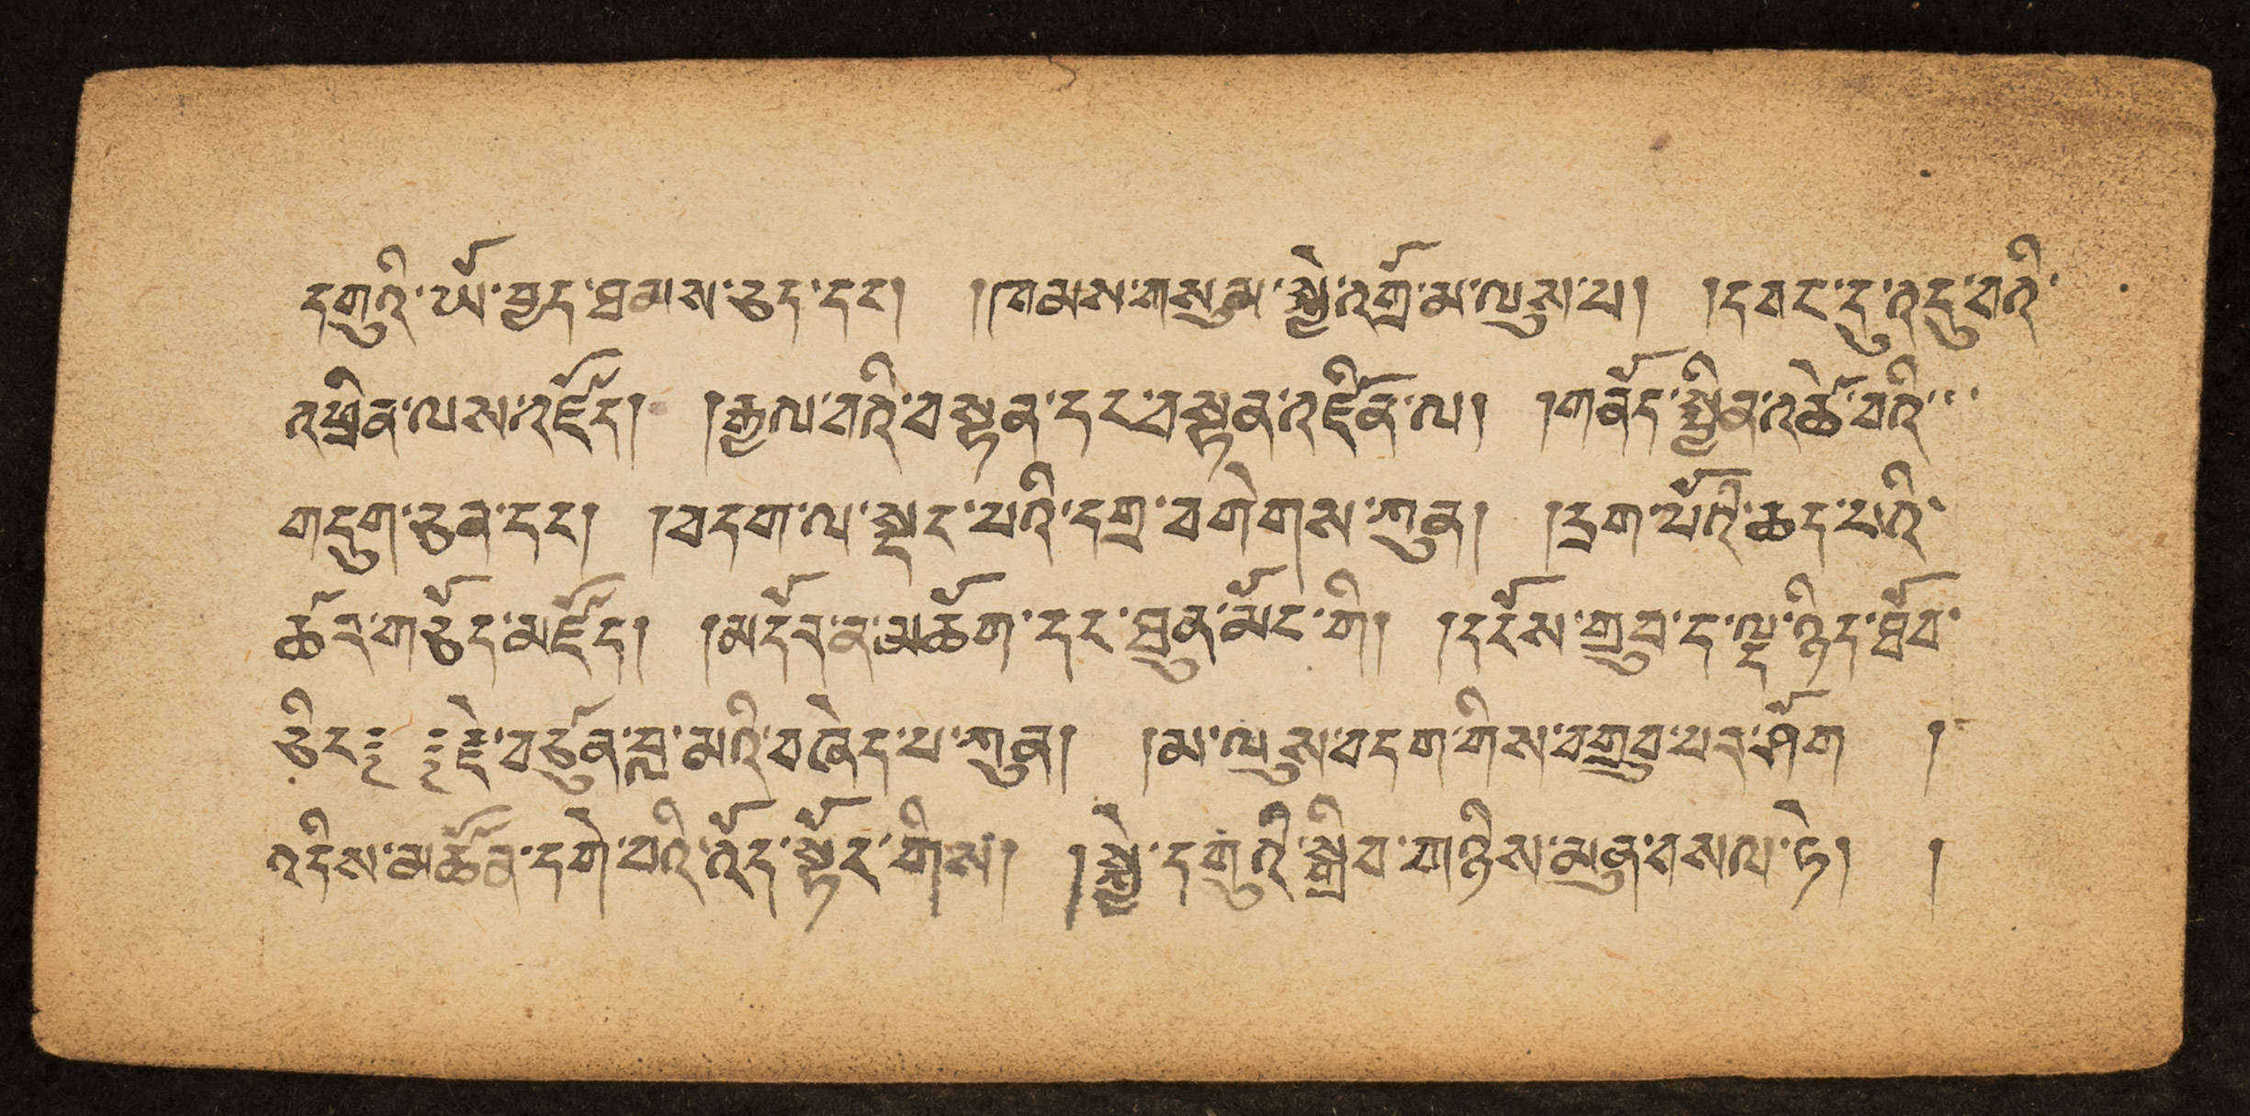 དགུའི་ཡོ་བྱད་ཐམས་ཅད་དང༌། །ཁམས་གསུམ་སྐྱེ་འགྲོ་མ་ལུས་པ། །དབང་དུ་འདུ་བའི་
འཕྲིན་ལས་འཛོད། །རྒྱལ་བའི་བསྟན་དང་བསྟན་འཛིན་ལ། །གནོད་སྦྱིན་འཚེ་བའི་
གདུག་ཅན་དང༌། །བདག་ལ་སྡང་བའི་དགྲ་བགེགས་ཀུན། །དྲག་པོའི་ཆད་པའི་
ཚར་གཅོད་མཛོད། །མདོར་ན་མཆོག་དང་ཐུན་མོང་གི། །དངོས་གྲུབ་ད་ལྟ་ཉིད་ཐོབ་
ཅིང༔ ༔རྗེ་བཙུན་བླ་མའི་བཞེད་པ་ཀུན། །མ་ལུས་བདག་གིས་བསྒྲུབ་པར་ཤོག །
འདིས་མཚོན་དགེ་བའི་འོད་སྟོང་གིས། །སྐྱེ་དགུའི་སྒྲིབ་གཉིས་མུན་བསལ་ཏེ། །